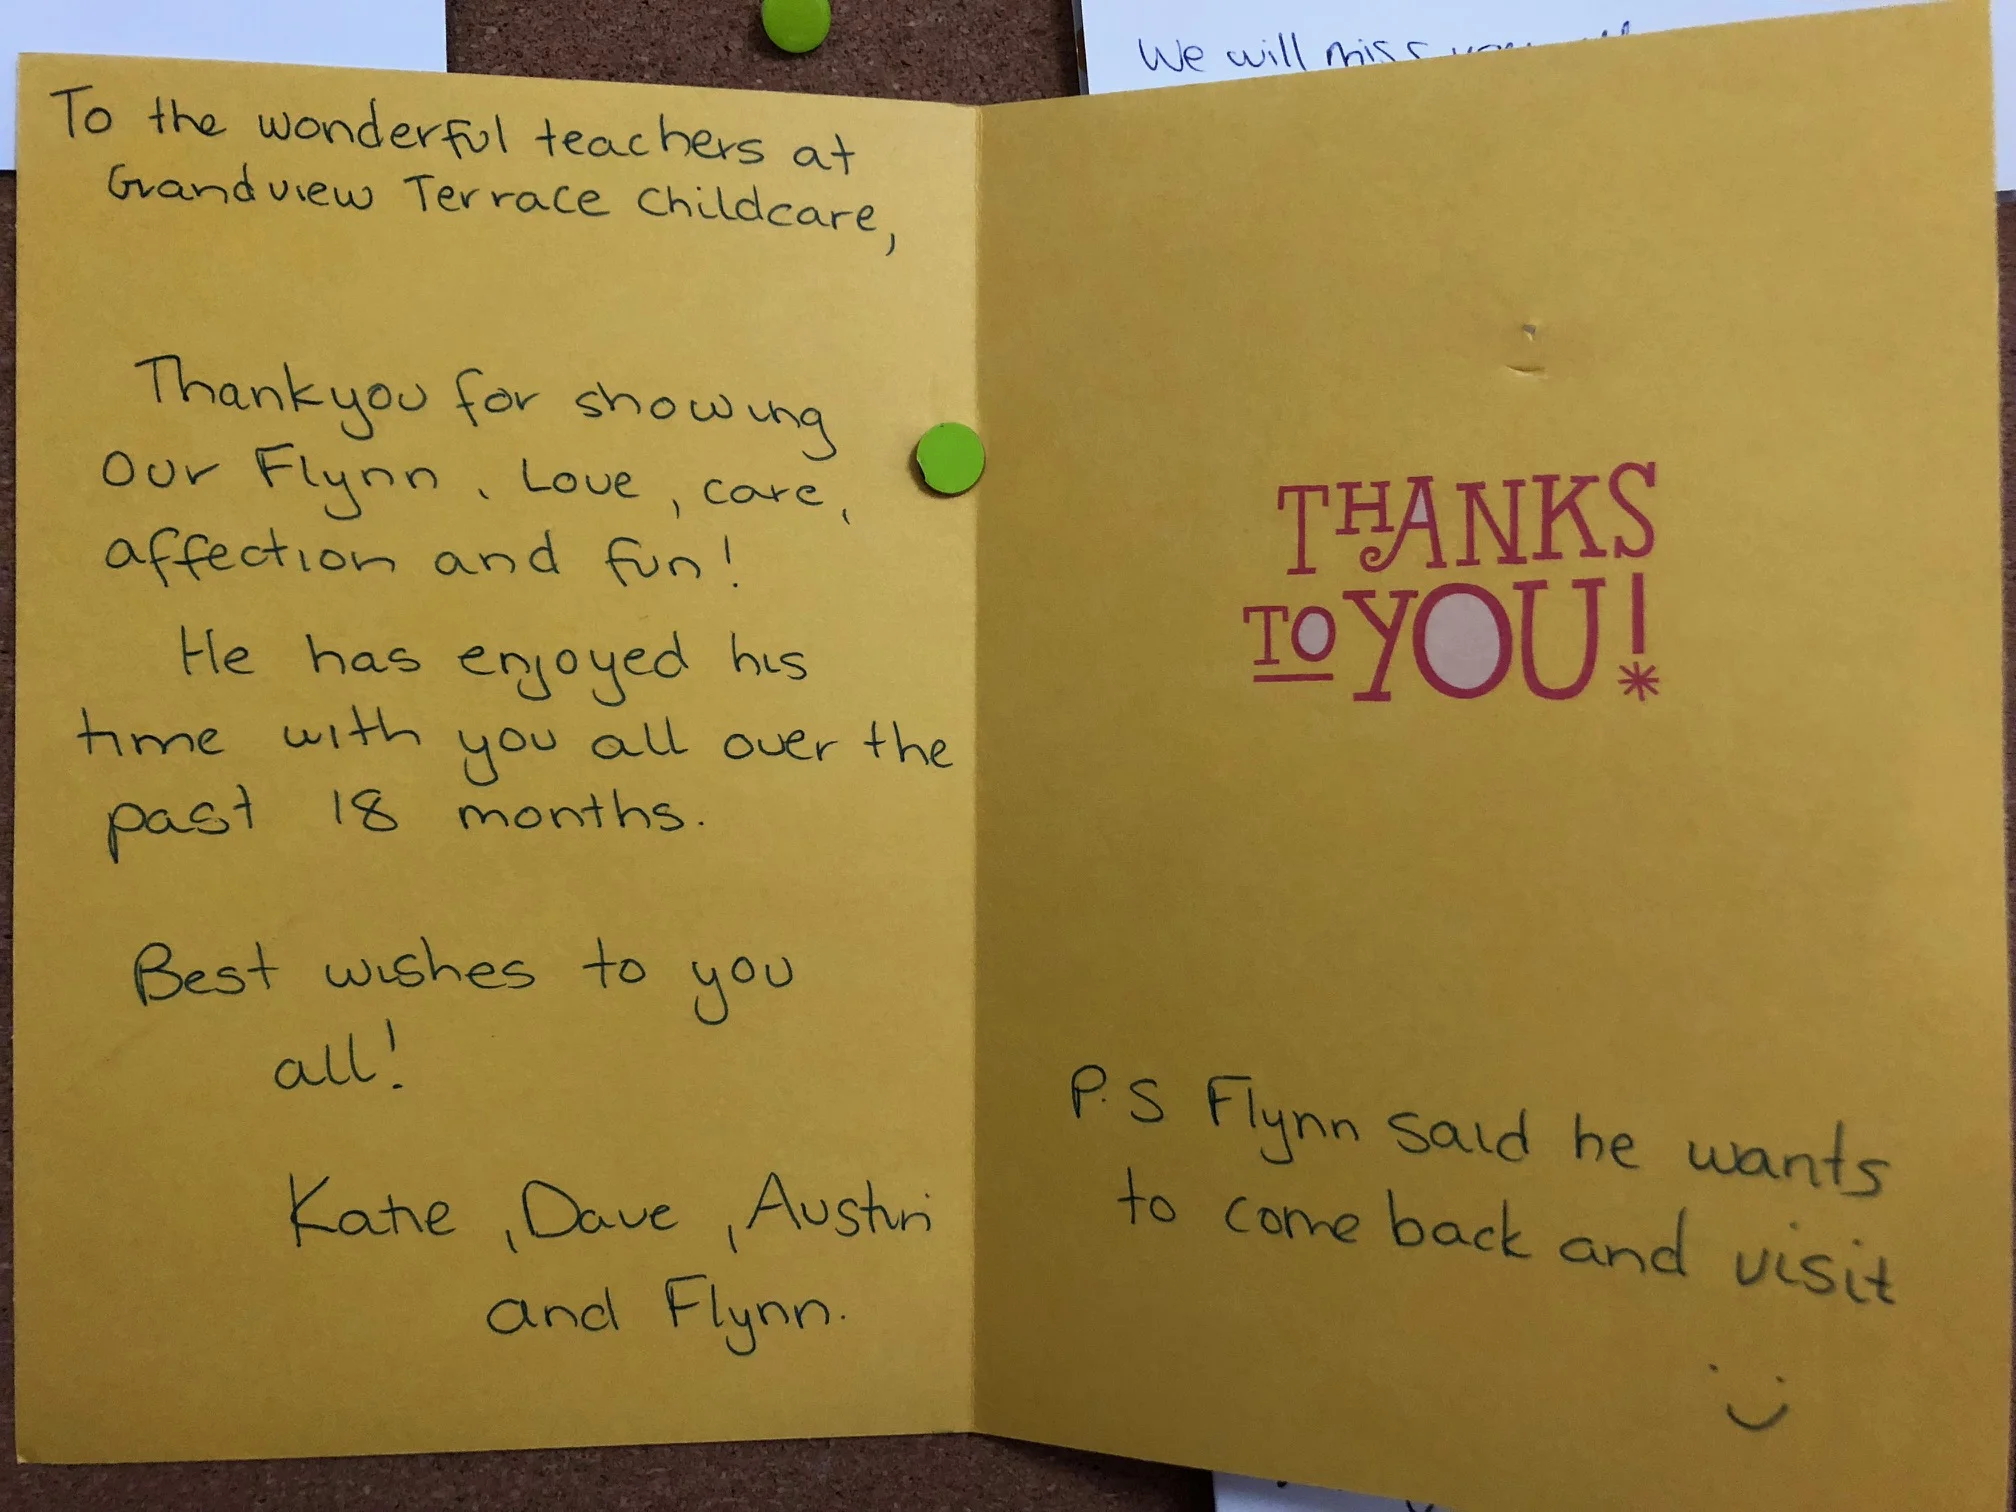 We will miss
To the wonderful teachers at
Grandview Terrace Childcare,
Thankyou for showing
our Flynn, Love, care,
affection and fun!
He has enjoyed his
time with you all over the
past 18 months.
Best wishes to you
all!
Katie, Dave, Austin
and Flynn.
THANKS
TO YOU!
P.S Flynn said he wants
to come back and visit